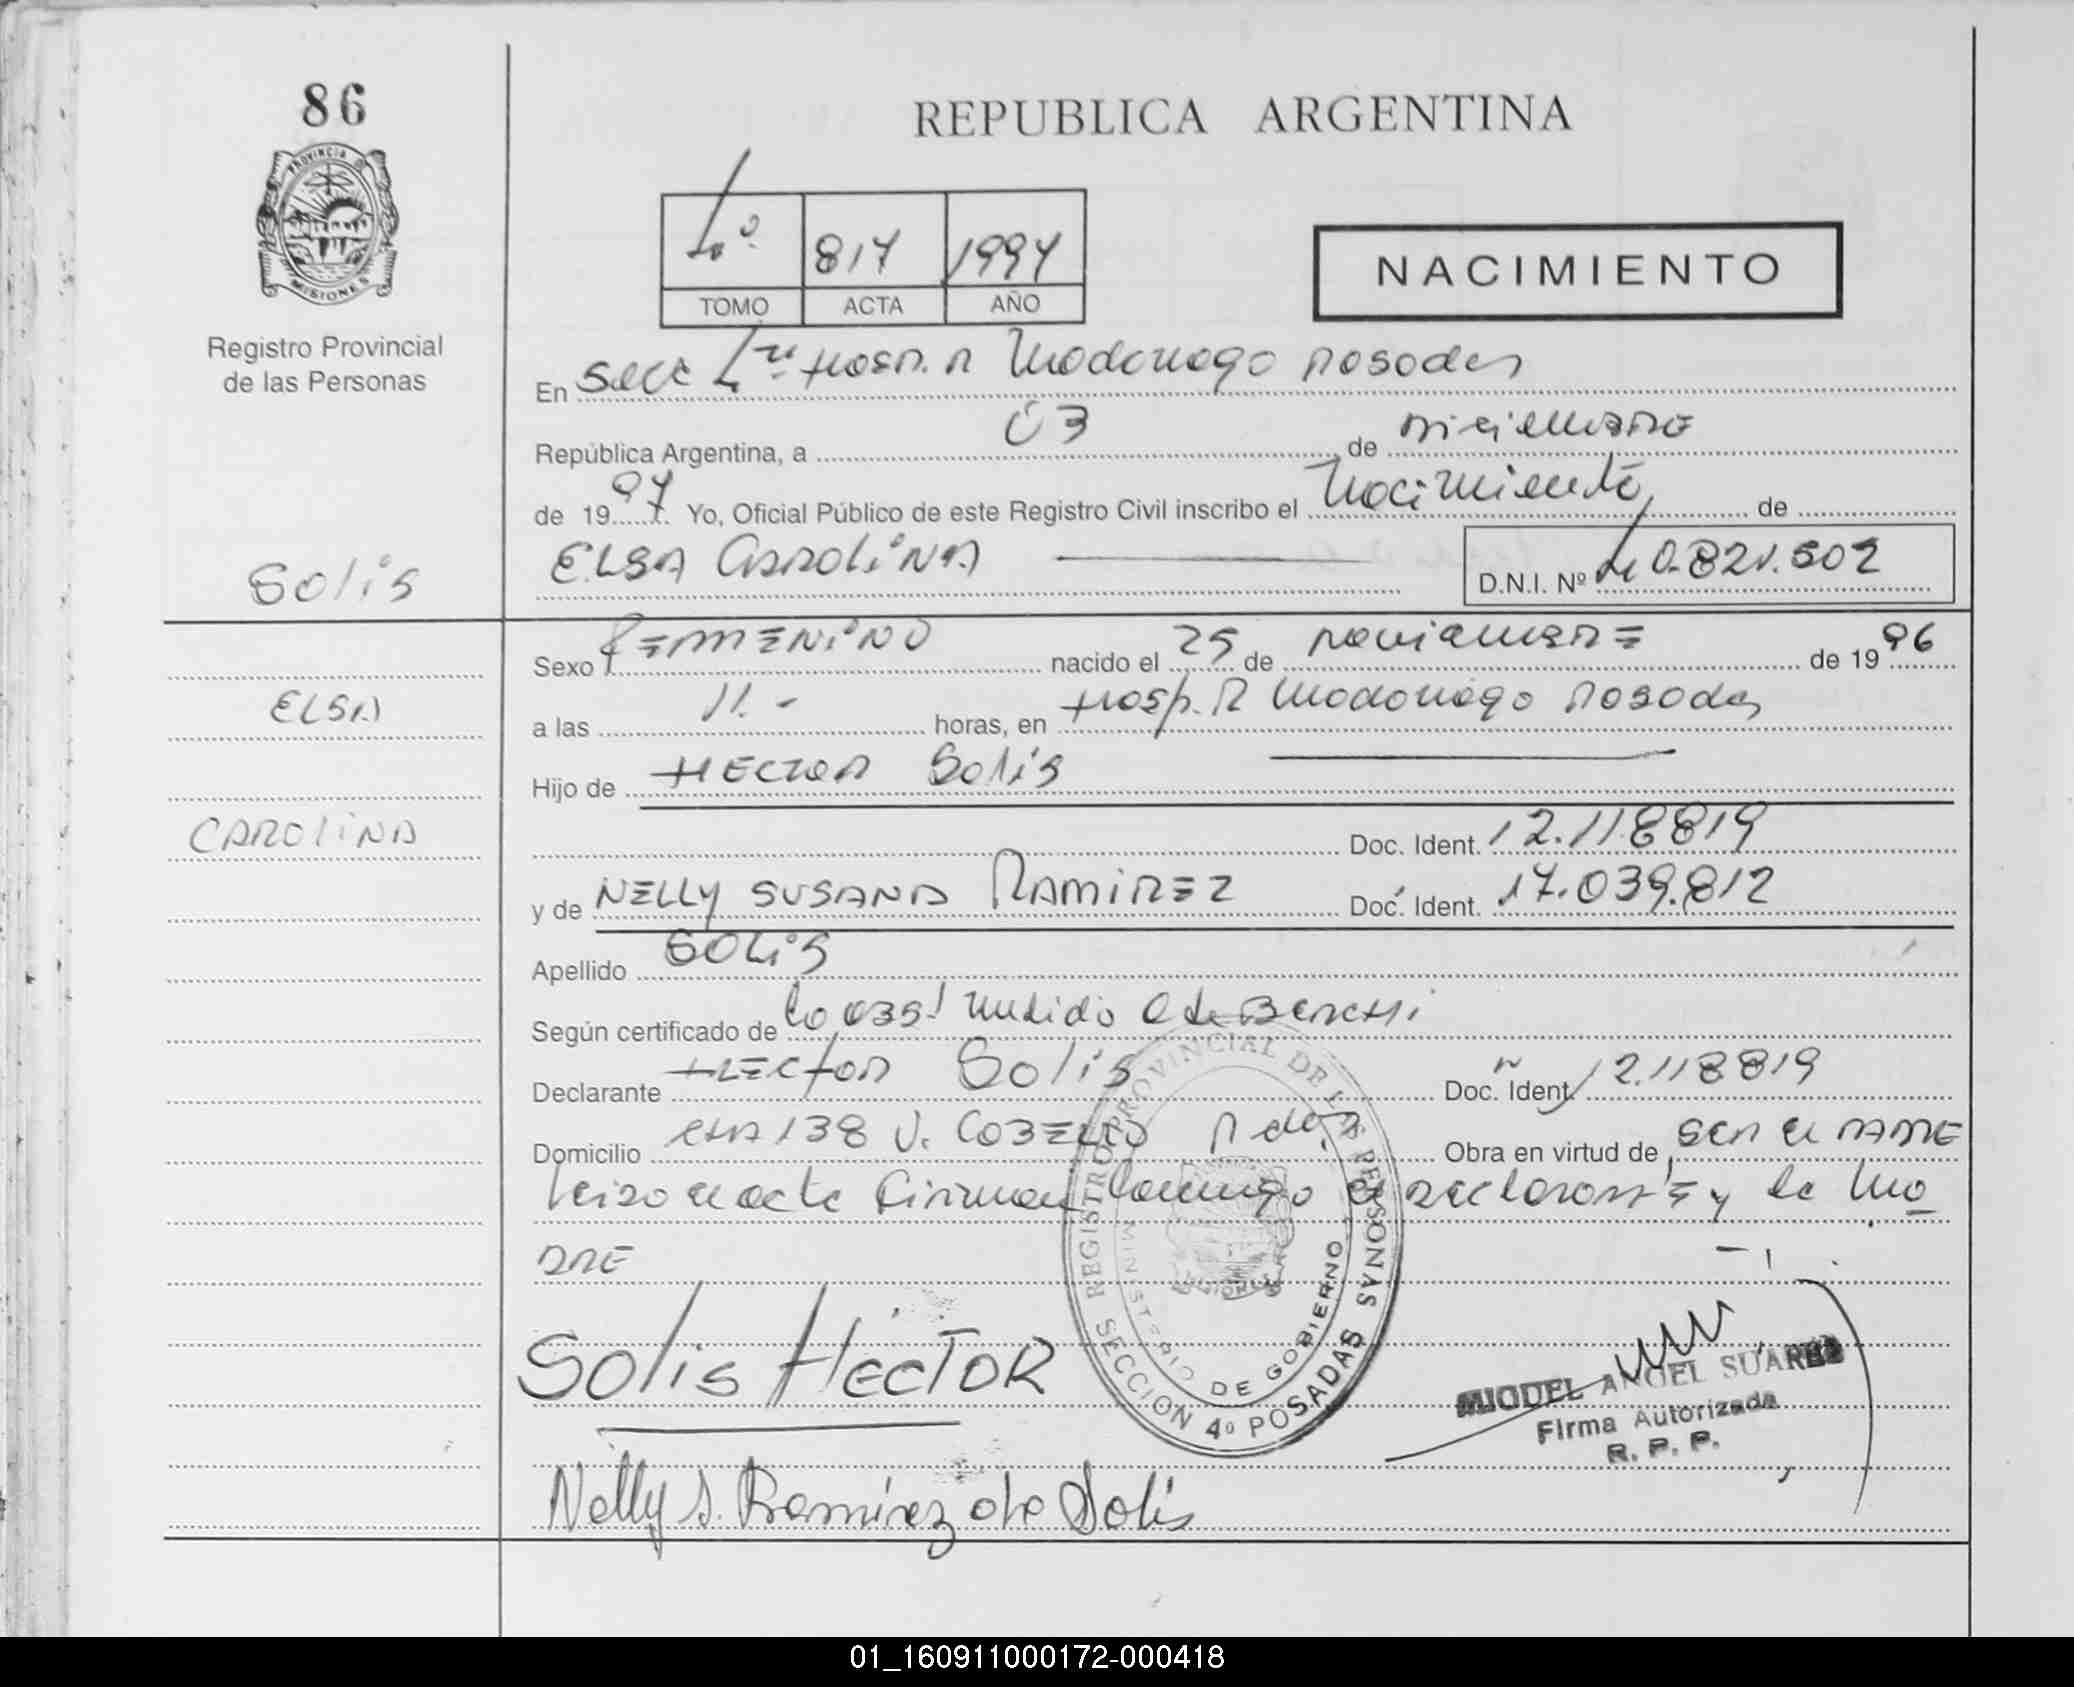 86
REPUBLICA ARGENTINA
PROVINCIA DE
MISIONES
Registro Provincial
de las Personas
817 1997
TOMO ACTA AÑO
NACIMIENTO
En Secc Hosp. R Madariaga Posadas
República Argentina, a 03 de Diciembre
de 1997 Yo, Oficial Público de este Registro Civil inscribo el Nacimiento de
ELSA CAROLINA
D.N.I. Nº 40.821.502
Solis
Sexo FEMENINO nacido el 25 de noviembre de 1996
ELSA
a las 11.- horas, en Hosp. R Madariaga Posadas
Hijo de HECTOR Solis
CAROLINA
Doc. Ident. 12.118819
y de NELLY SUSANA RAMIREZ Doc. Ident. 17.039.812
Apellido SOLIS
Según certificado de
Declarante HECTOR Solis Doc. Ident 12.118819
Domicilio 138 Obra en virtud de ser el PADRE
acta Firman conmigo el declarante y la MA
DRE
REGISTRO PROVINCIAL DE LAS PERSONAS
MINISTERIO DE GOBIERNO
SECCION 4º POSADAS
Solis HECTOR
MIGUEL ANGEL SUAREZ
Firma Autorizada
R. P. P.
Nelly S. Ramírez de Solís
01_160911000172-000418